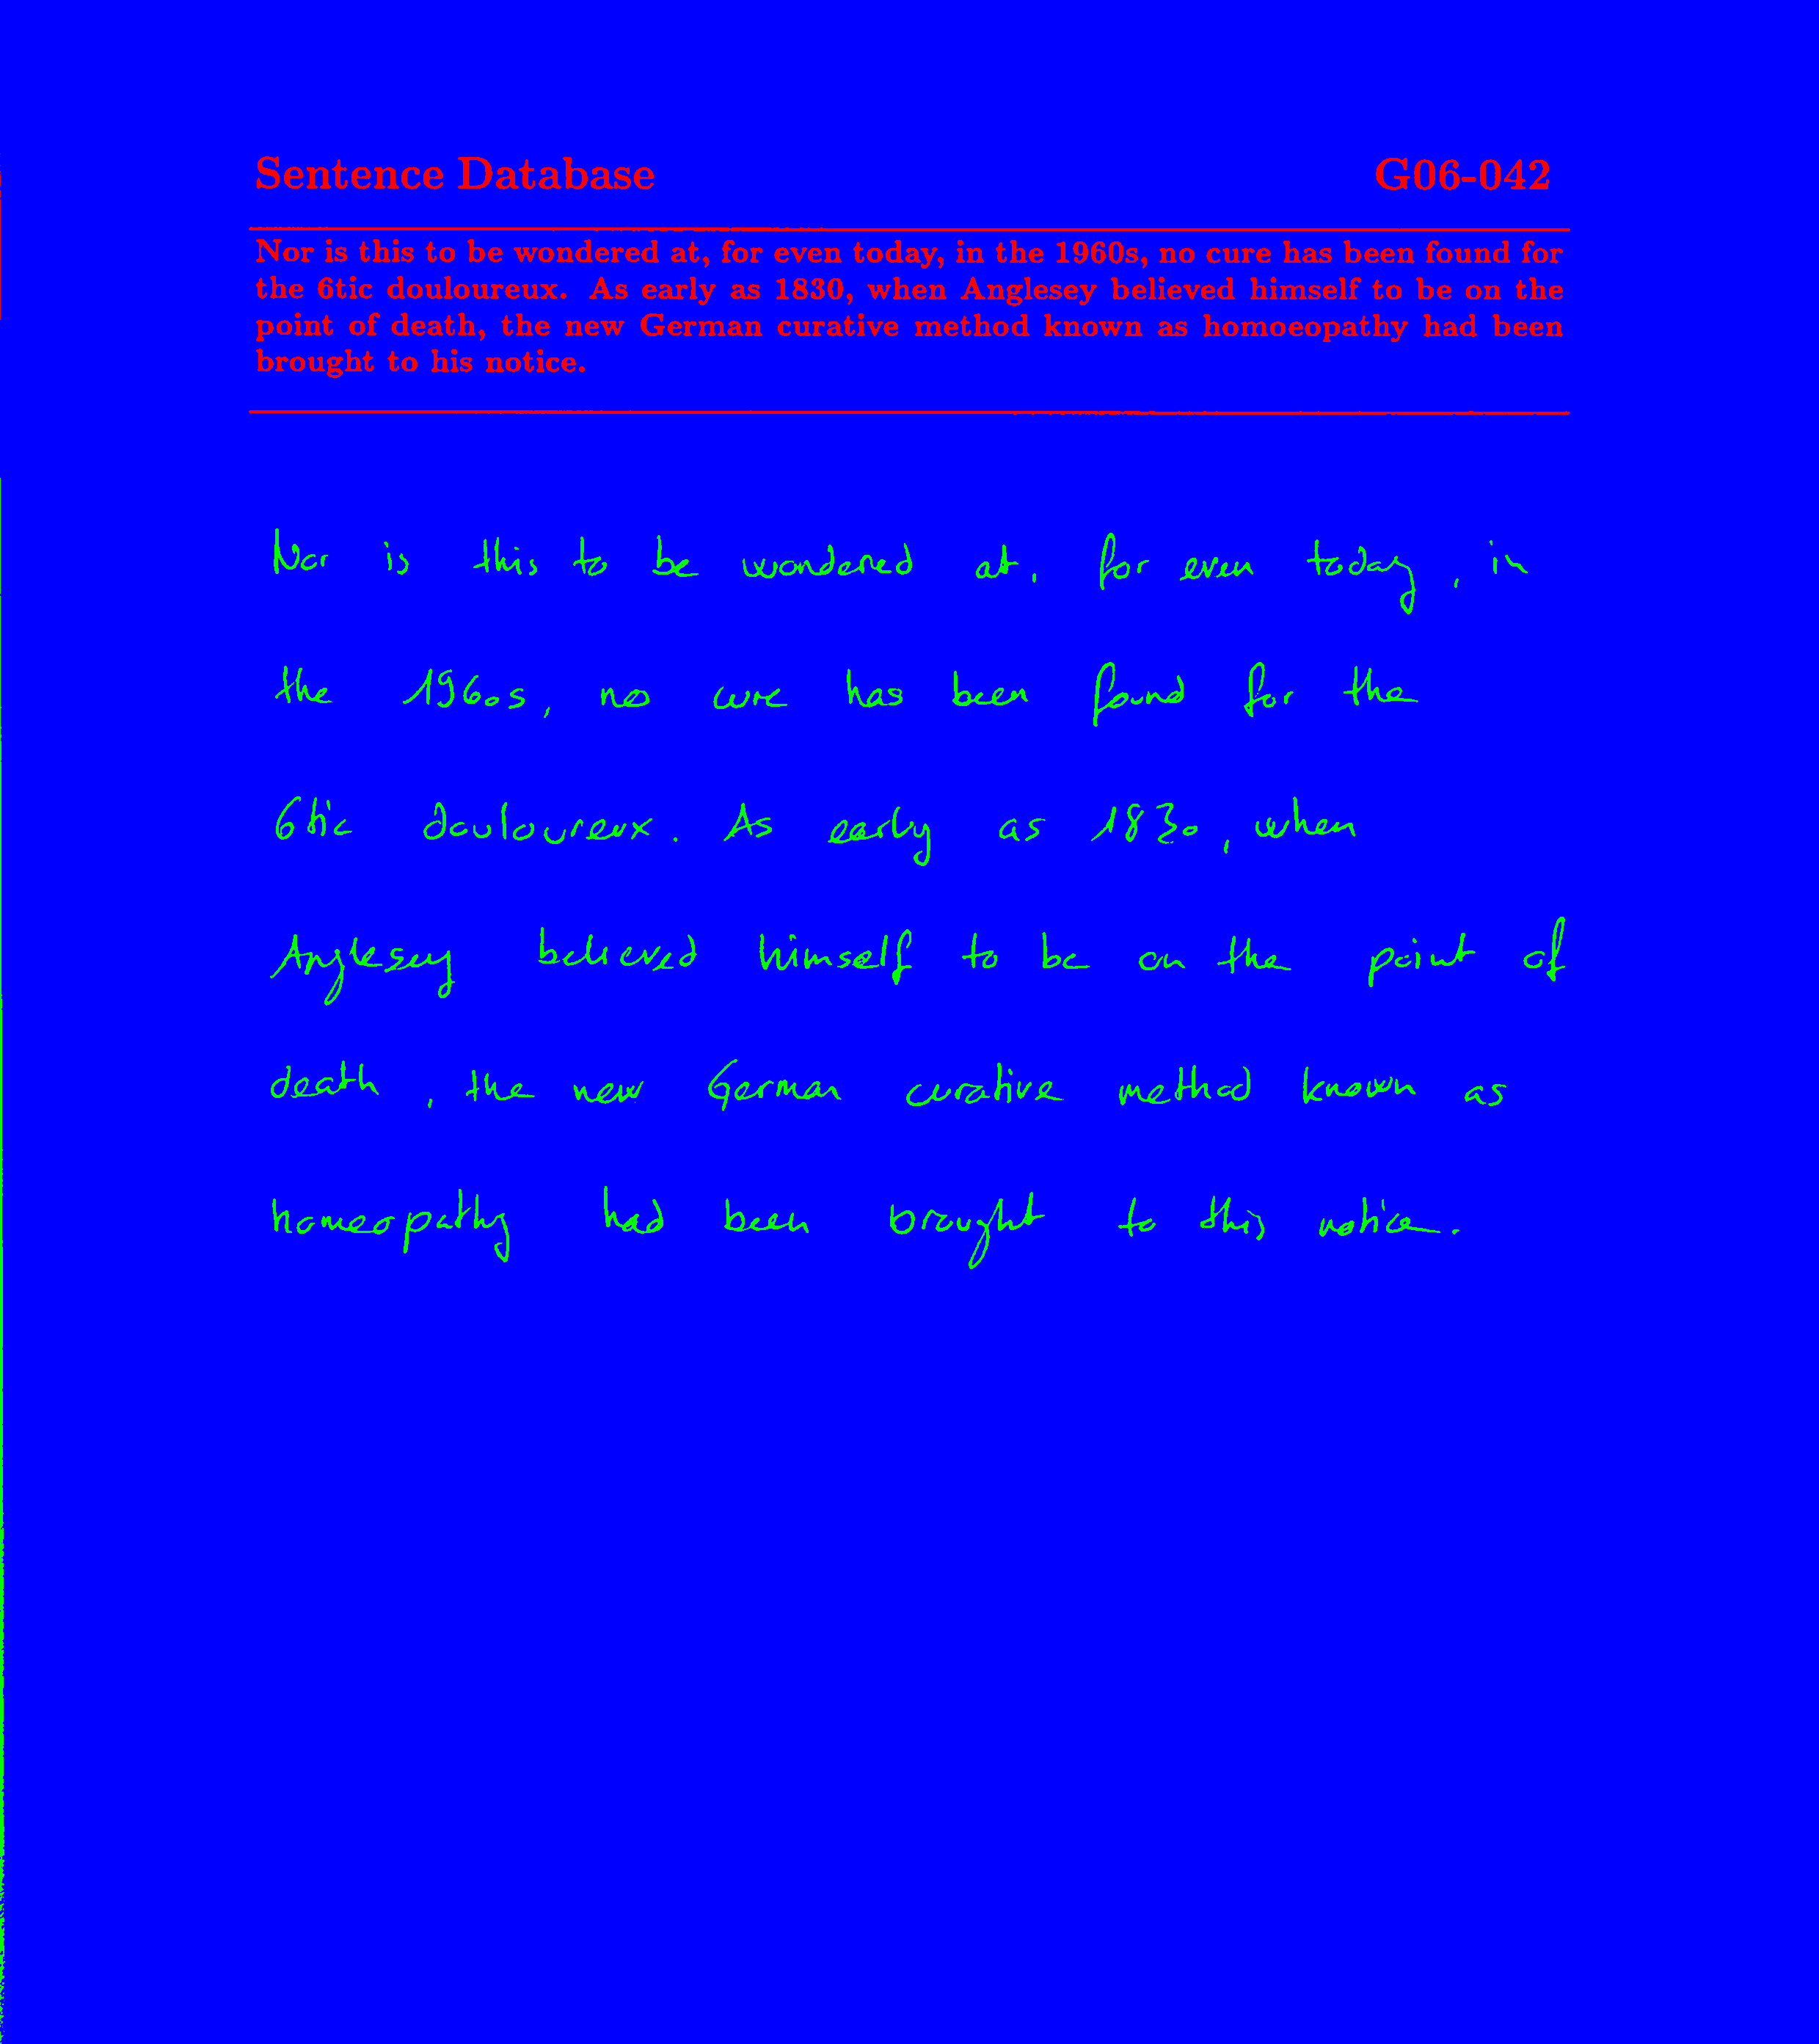 Sentence Database G06-042
Nor is this to be wondered at, for even today, in the 1960s, no cure has been found for
the 6tic douloureux. As early as 1830, when Anglesey believed himself to be on the
point of death, the new German curative method known as homoeopathy had been
brought to his notice.
Nor is this to be wondered at, for even today, in
the 1960s, no cure has been found for the
6tic douloureux. As early as 1830, when
Anglesey believed himself to be on the point of
death, the new German curative method known as
homeopathy had been brought to this notice.